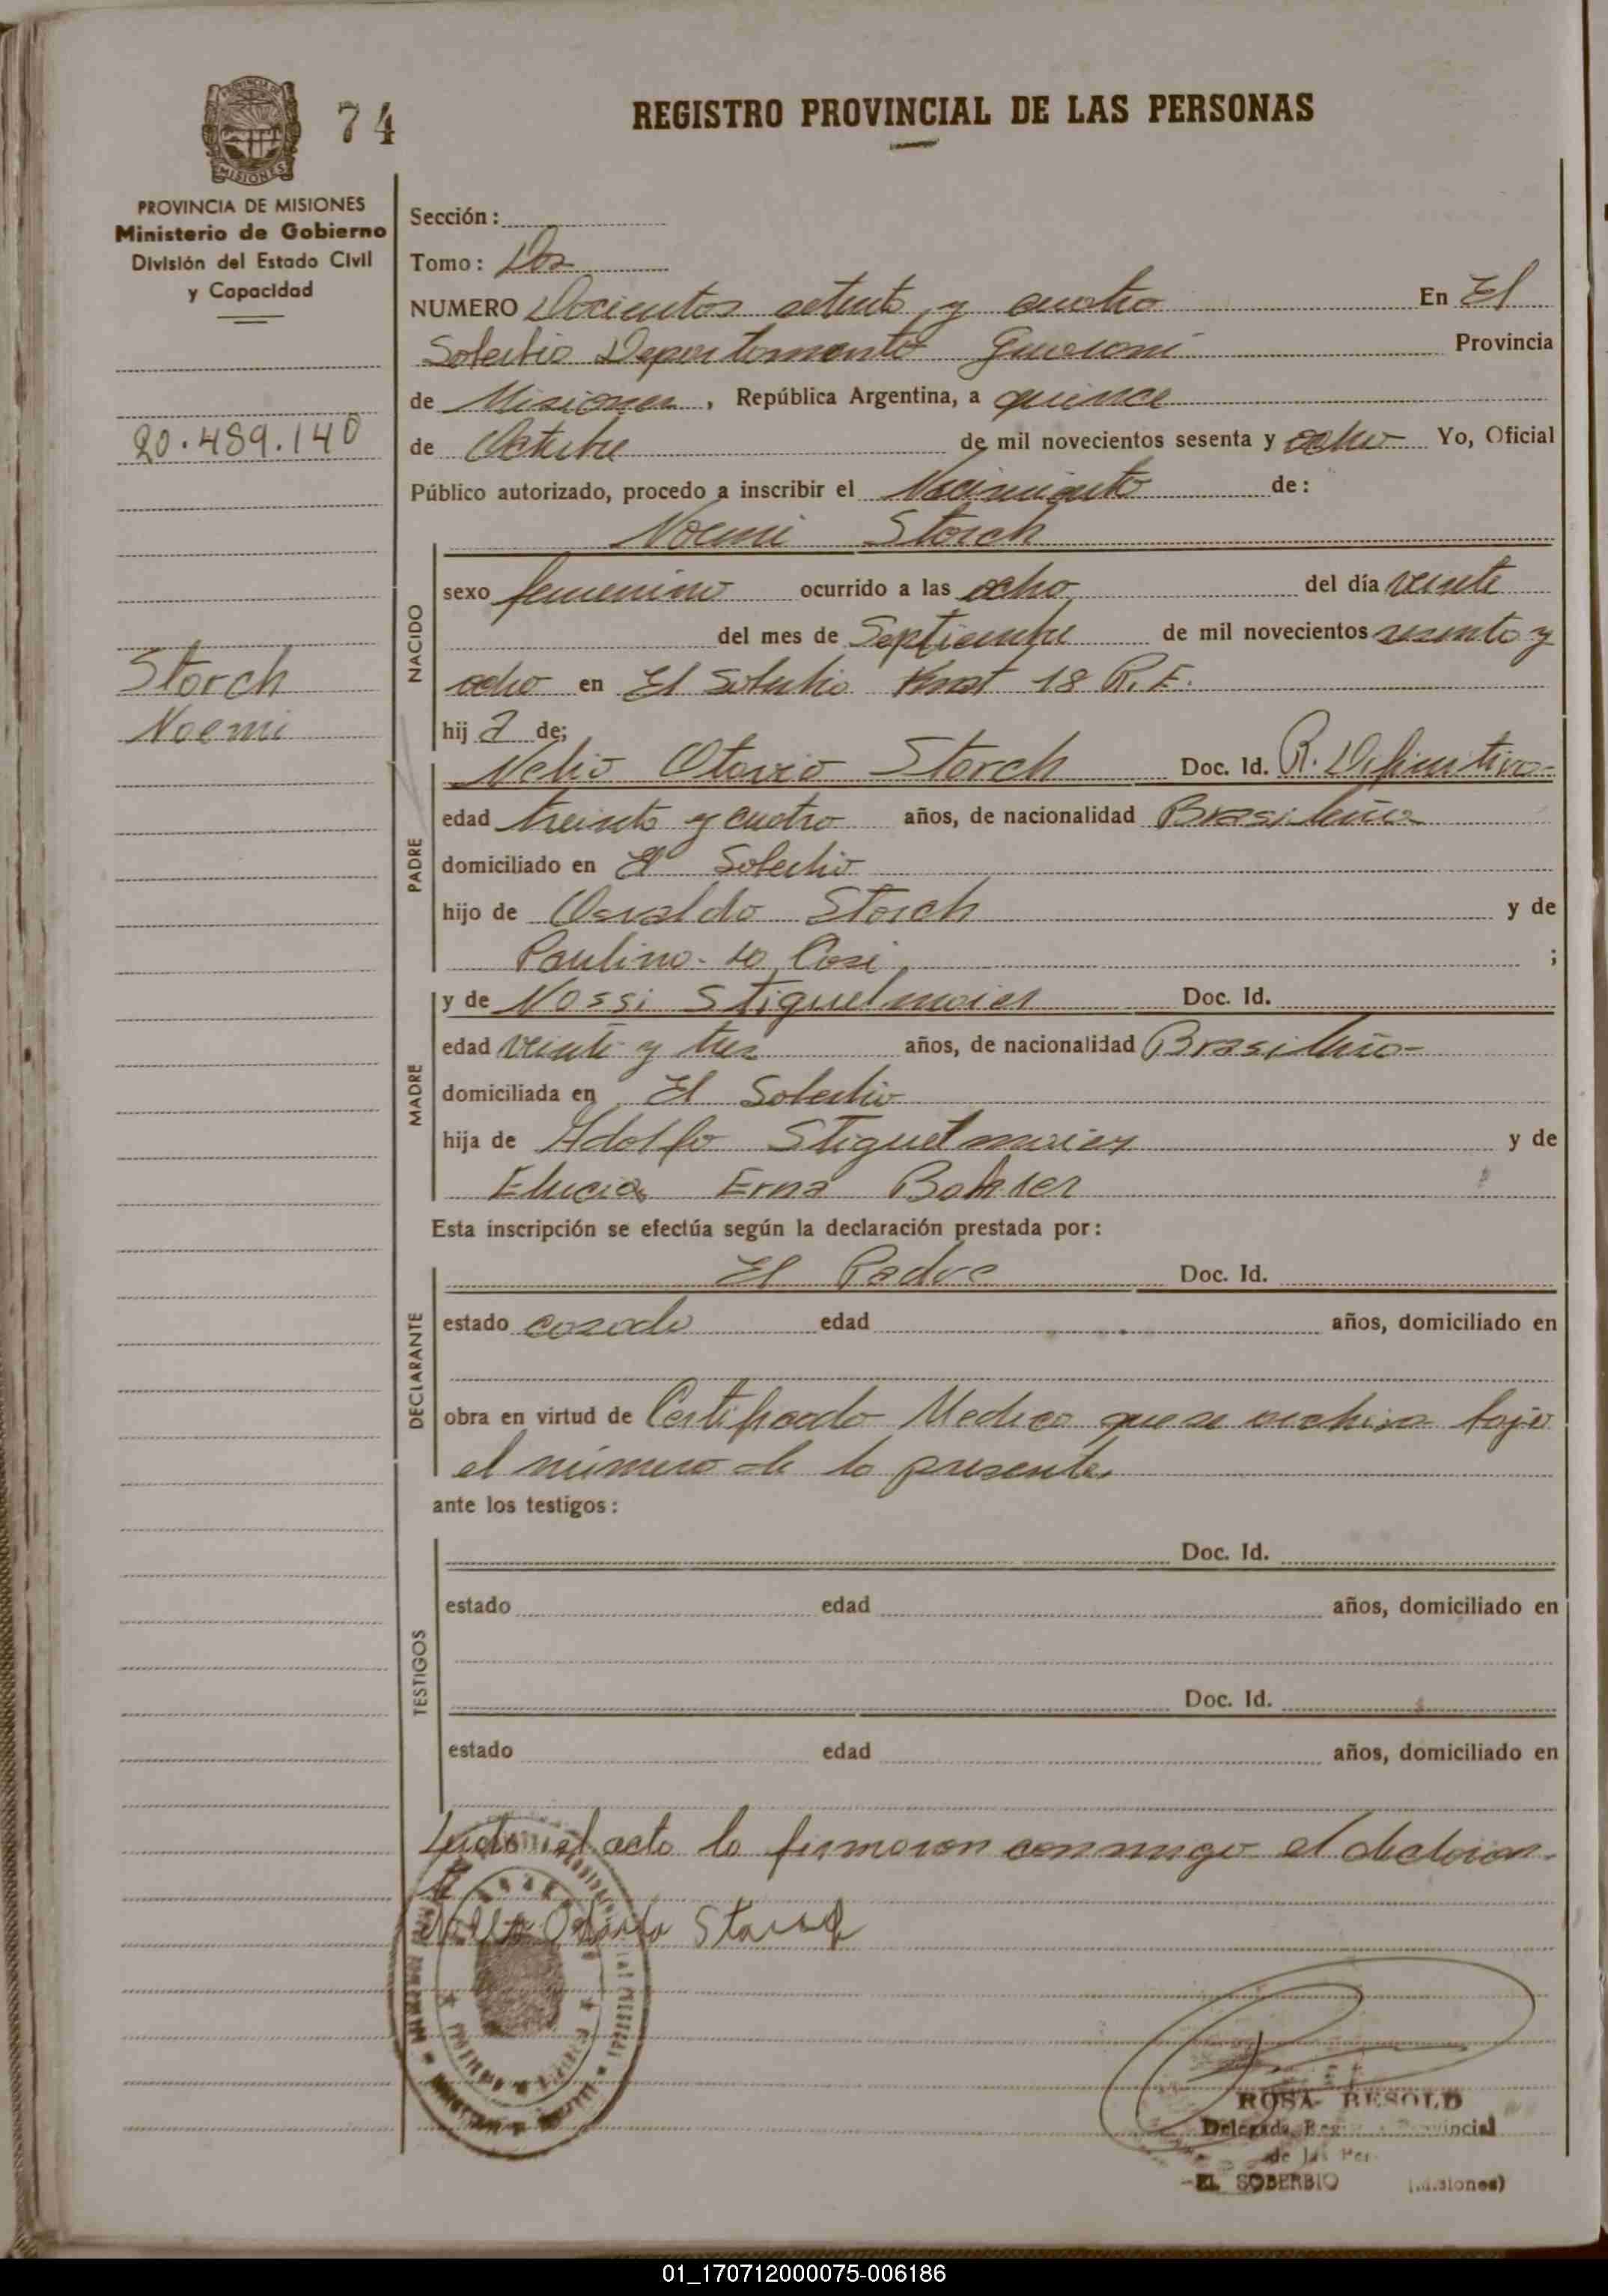 74
REGISTRO PROVINCIAL DE LAS PERSONAS
MISIONES
PROVINCIA DE MISIONES
Ministerio de Gobierno
División del Estado Civil
y Capacidad
20.489.140
Storch
Noemi
Sección:
Tomo: Dos
NUMERO Docientos setenta y cuatro En El
Soberbio Departamento Guarani Provincia
de Misiones, República Argentina, a quince
de Octubre de mil novecientos sesenta y ocho Yo, Oficial
Público autorizado, procedo a inscribir el Nacimiento de:
Noemi Storch
NACIDO
sexo femenino ocurrido a las ocho del día veinte
del mes de Septiembre de mil novecientos sesenta y
ocho en El Soberbio 18 R.F.
hij a de;
PADRE
Nelio Otavio Storch Doc. Id. R. Definitiva
edad treinta y cuatro años, de nacionalidad Brasileña
domiciliado en El Soberbio
hijo de Osvaldo Storch y de
Paulina ;
MADRE
y de Nossi Stiguelmaier Doc. Id.
edad veinte y tres años, de nacionalidad Brasileña
domiciliada en El Soberbio
hija de Adolfo Stiguelmaier y de
Erna
Esta inscripción se efectúa según la declaración prestada por:
DECLARANTE
El Padre Doc. Id.
estado casado edad años, domiciliado en
obra en virtud de Certificado Medico que se archiva bajo
el número de la presente.
ante los testigos:
TESTIGOS
Doc. Id.
estado edad años, domiciliado en
Doc. Id.
estado edad años, domiciliado en
Leido el acta la firmaron conmigo el declaran-
te
ROSA RESOLD
Delegada
de las
EL SOBERBIO (Misiones)
01_170712000075-006186